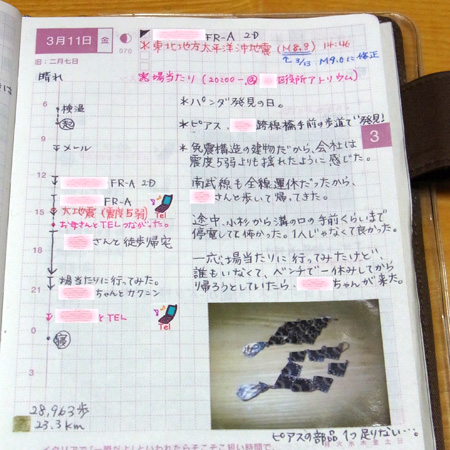 3月11日 金
070
旧:二月七日
晴れ
FR-A 2D
※東北地方太平洋沖地震 (M8.9) 14:46
3/13 M9.0に修正
場当たり (20:00-, @ 区役所アトリウム)
6
検温
起
9
メール
12
FR-A 2D
15
大地震 (震度5弱)
お母さんとTELつながった。
さんと徒歩帰宅
18
場当たりに行ってみた。
21
ちゃんとカフン
0
とTEL
Tel
寝
3
28,963歩
23.3km
*パンダ発見の日。
*ピアス、 跨線橋手前の歩道で発見!
*免震構造の建物だから、会社は
震度5弱よりも揺れたように感じた。
3
南武線も全線運休だったから、
さんと歩いて帰ってきた。
途中、小杉から溝のロ手前くらいまで
停電してて怖かった。1人じゃなくて良かった。
一応、場当たりに行ってみたけど、
誰もいなくて、ベンチで一休みしてから
帰ろうとしていたら、 ちゃんが来た。
ピアスの部品1つ足りない…。